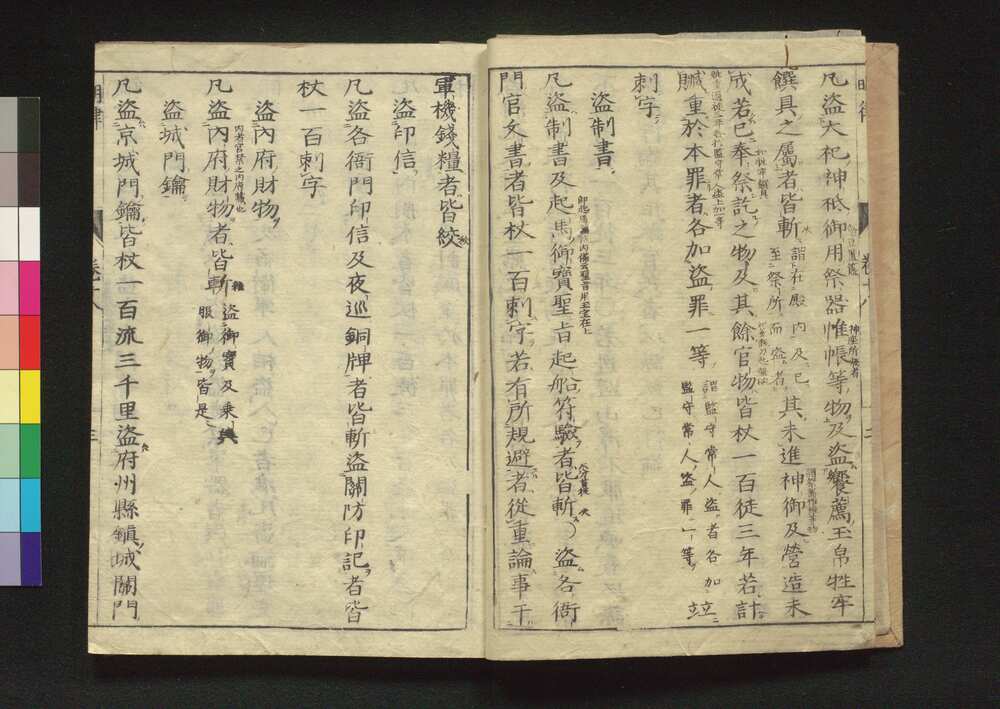 凡盜大祀神祇御用祭器惟帳等物及盜饗薦玉帛牲牢
饌具之屬者皆斬謂在殿內及已至祭所而盜者其未進神御及營造未
成若已奉祭訖之物及其餘官物皆杖一百徒三年若計
贓重於本罪者各加盜罪一等謂監守常人盜者各加監守常人盜罪一等並
刺字
盜制書
凡盜制書及起馬御寶聖旨起船符驗者皆斬盜各衙
門官文書者皆杖一百刺字若有所規避者從重論事干
軍機錢糧者皆絞
盜印信
凡盜各衙門印信及夜巡銅牌者皆斬盜關防印記者皆
杖一百刺字
盜內府財物
凡盜內府財物者皆斬雜盜御寶及乗輿服御物皆是
盜城門鑰
凡盜京城門鑰皆杖一百流三千里盜府州縣鎮城關門
明律
卷十八
三